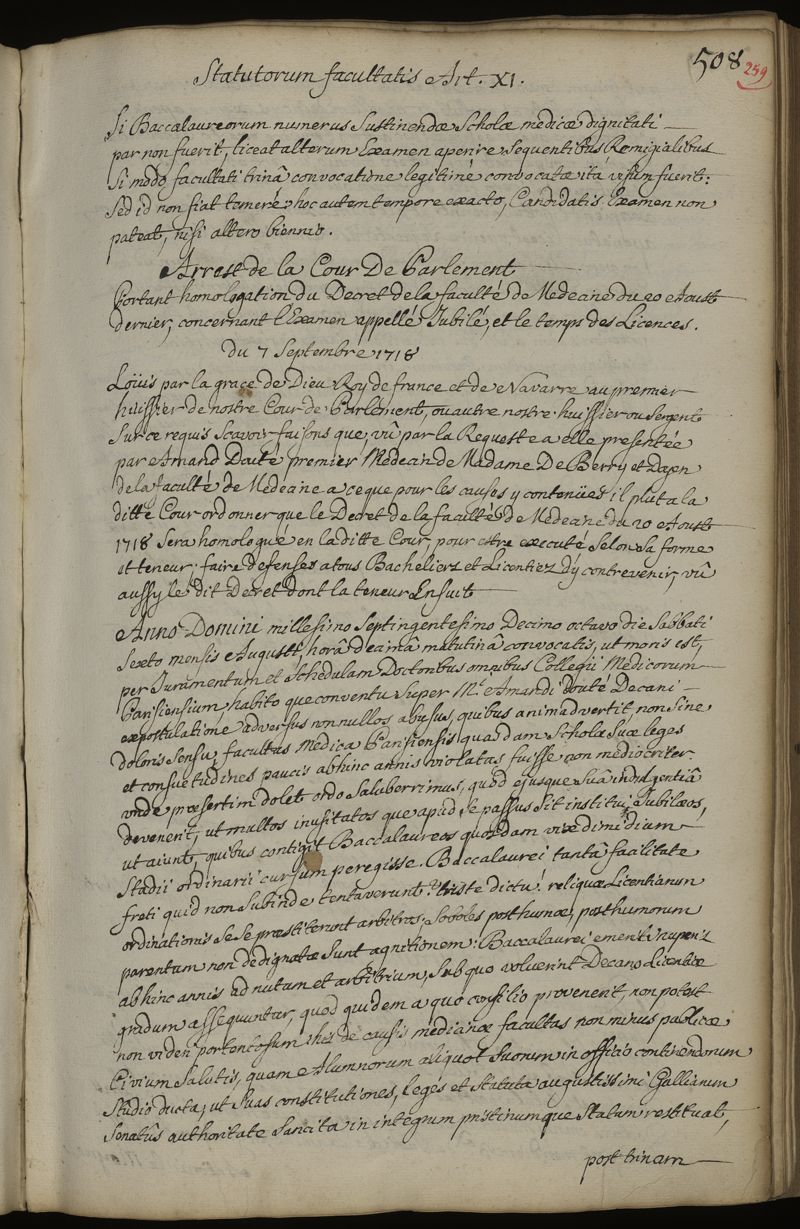 508
259
Statutorum facultatis Art. XI.
Si Baccalaureorum numerus Sustinendæ Scholæ medicæ dignitati
par non fuerit, liceat alterum Examen aperire Sequentibus Remigialibus
Si modo facultati trinâ convocatione legitimè convocatæ ità visum fuerit:
Sed id non fiat temerè, hoc autem tempore exacto, Candidatis Examen non
pateat, nisi altero biennio.
Arrest de la Cour De Parlement
Portant homologation du Decret de la faculté de Medecine du 20 Aoust
dernier, concernant l'Examen appellé Jubilé, et le temps des Licences.
du 7 Septembre 1718
Loüis par la grace de Dieu Roy de france et de Navarre au premier
huissier de nostre Cour de Parlement, ou autre nostre huissier ou Sergent
Sur ce requis Scavoir faisons que, vû par la Requeste a elle presentée
par Amand Douté premier Medecin de Madame De Berry et Doyen
de la faculté de Medecine a ce que pour les causes y contenües il plut a la
ditte Cour ordonner que le Decret de la faculté de Medecine du 20 Aoust
1718 Sera homologué en la ditte Cour, pour estre executé Selon Sa forme
et teneur, faire defenses a tous Bacheliers et Licentiez d'y contrevenir, vû
aussy le dit Decret dont la teneur Ensuit
Anno Domini millesimo Septingentesimo Decimo octavo die Sabbati
Sexto mensis Augusti, horâ decimâ matutinâ convocatis, ut moris est,
per Juramentum et Schedulam Doctoribus omnibus Collegii Medicorum
Parisiensium, habito que conventu Super Mi. Amandi Douté Decani
expostulatione adversus nonnullos abusus, quibus animadvertit, non Sine
doloris Sensu, facultas Medica Parisiensis quasdam Scholæ Suæ leges
et consuetudines paucis abhinc annis violatas fuisse non mediocriter.
vnde præsertim dolet ordo Saluberrimus, quòd ejusque Suâ indulgentiâ
devenerit, ut multos inusitatos que apud Se passus Sit institui Jubilæos,
ut aiunt, quibus contigit Baccalaureos quosdam vix dimidium
Stadii ordinarii cursum peregisse. Baccalaurei tantâ facilitate
freti quid non Subinde tentaverunt? triste dictu! reliquæ Licentiarum
ordinationis Se Se præstiterunt arbitros, Soboles posthumæ, posthumorum
parentum non dedignatæ Sunt agnitionem: Baccalaurei emeriti nuperis
abhinc annis ad nutum et arbitrium, Sub quo voluerint Decano Licentiæ
gradum assequuntur, quod quidem a quo consilio provenerit, non potest
non videri portentosum his de causis medicinæ facultas non minus publicæ
Civium Salutis, quam Alumnorum aliquot Suorum in officio continendorum
Studio ducta, ut Suas constitutiones, leges et Statuta augustissimi Galliarum
Senatûs authoritate Sancita in integrum pristinumque Statum restituat,
post trinam